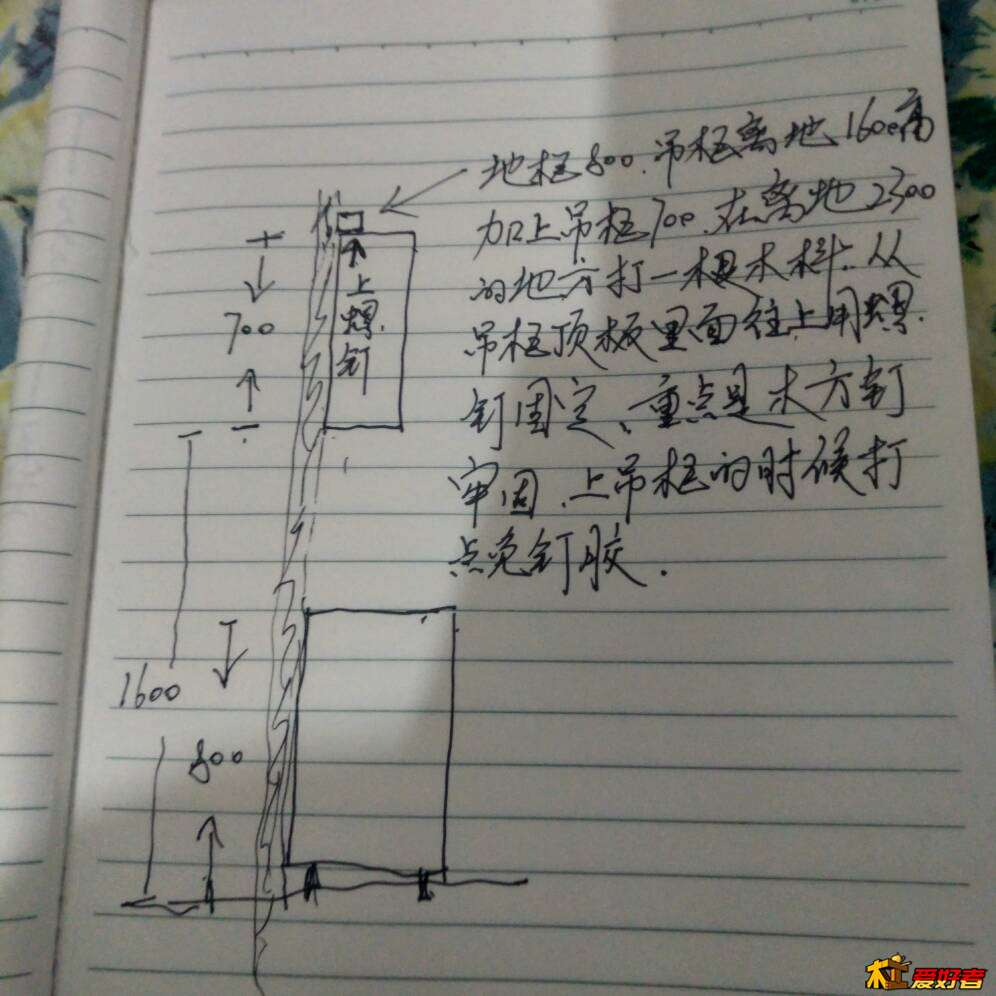 地柜800.吊柜离地1600高
加上吊柜700.在离地2300
的地方打一根木料.从
吊柜顶板里面往上用螺.
钉固定、重点是木方钉
牢固.上吊柜的时候打
点免钉胶.
上螺.钉
700
1600
800
木工爱好者